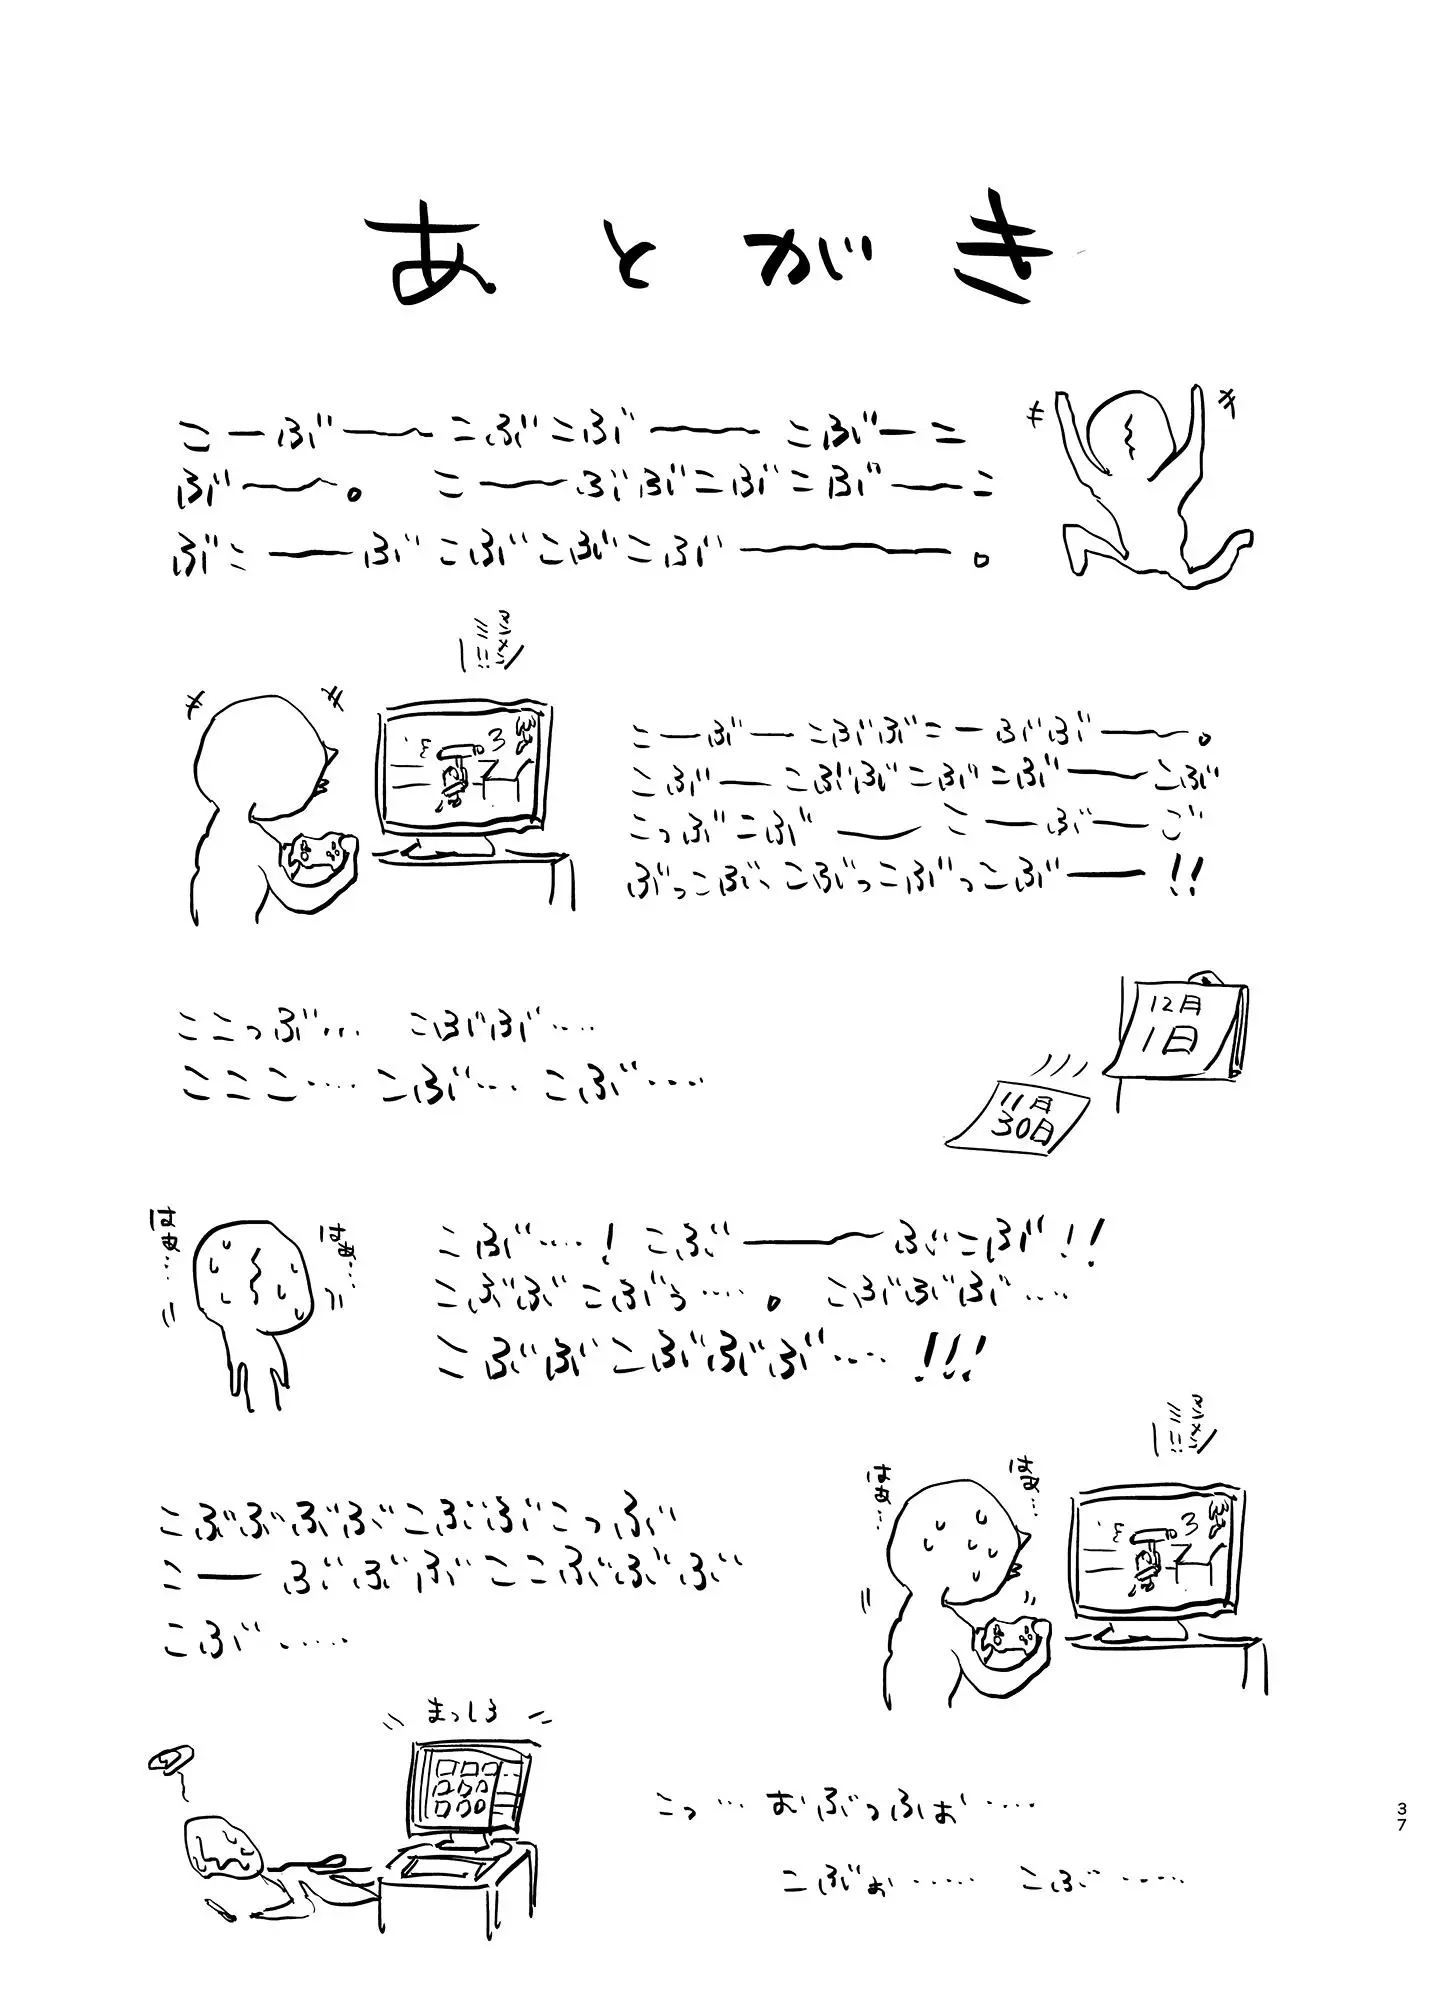 あとがき
こーぶーーこぶこぶーーこぶーこ
ぶーー。こーーぶぶこぶこぶーーこ
ぶこーーぶこぶこぶこぶーーーー。
こーぶーこぶぶこーぶぶーー。
こぶーこぶぶこぶこぶーーこぶ
こっぶこぶーーこーぶーご
ぶっこぶ、こぶっこぶっこぶーー!!
ここっぶ… こぶぶ……
こここ…… こぶ… こぶ……
12月
1日
11月
30日
はぁ…
はぁ…
こぶ……! こぶーーーぶこぶ!!
こぶぶこぶぅ……。こぶぶぶ……
こぶぶこぶぶぶ…… !!!
はぁ…
はぁ…
こぶぶぶぶこぶぶこっぶ
こーぶぶぶここぶぶぶ
こぶ……
まっしろ
こっ… おぶっふぉ……
こぶぉ…… こぶ……
37